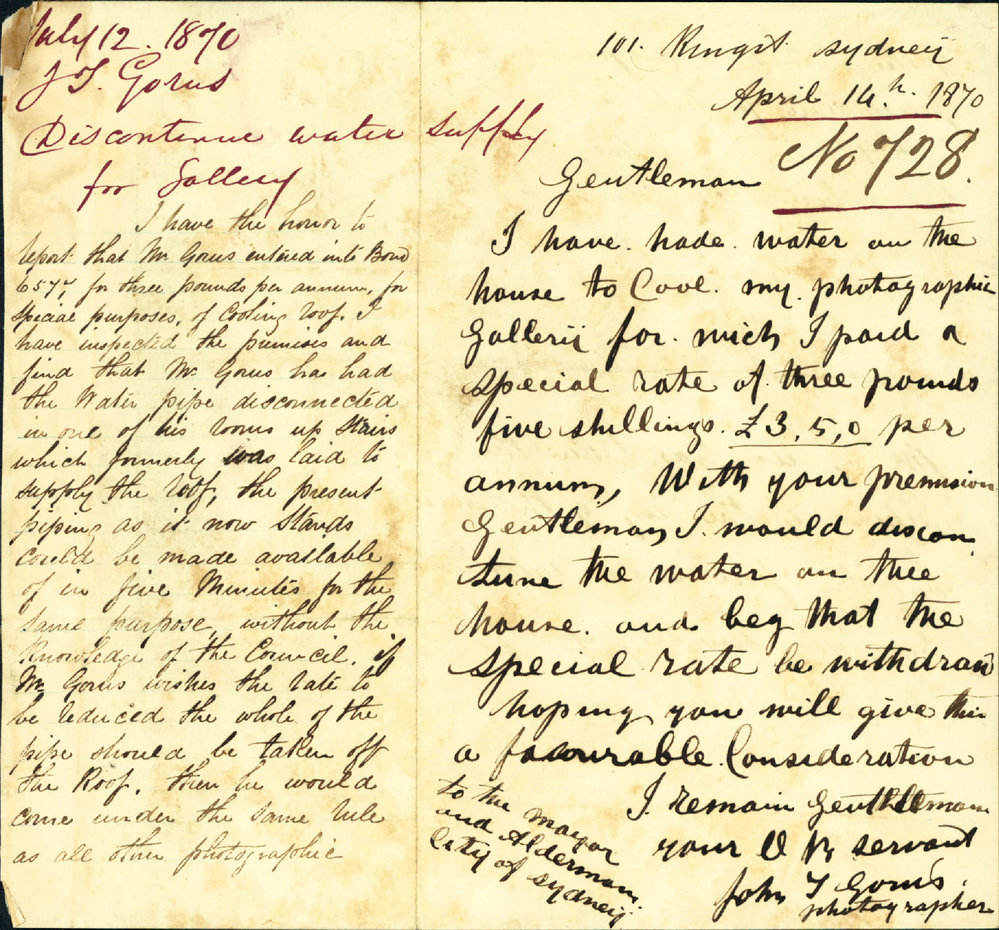 July 12. 1870
J T. Gorus
Discontinue water supply
for Gallery
I have the honor to
report that Mr Gorus entered into Bond
6577, for three pounds per annum, for
special purposes, of Cooling roof. I
have inspected the premises and
find that Mr Gorus has had
the Water pipe disconnected
in one of his rooms up stairs
which formerly was laid to
supply the roof, the present
piping as it now stands
could be made available
of in five Minutes for the
same purpose, without the
Knowledge of the Council. if
Mr Gorus wishes the rate to
be reduced the whole of the
pipe should be taken off
the Roof. then he would
come under the same rule
as all other photographic
101. Kingst. sydneij
April 14h. 1870
No 728.
Gentleman
I have. hade. water on the
house to Cool. my. photographic
Gallerij for. wich I paid a
special rate of. three pounds
five shillings. £3,5,0 per
annum, With your premision
Gentleman I. would discon
tune the water on thee
house. and beg that the
special rate be withdran
hoping you will give this
a favourable Consideration
I. remain Gentleman
your servant
John T Gorus.
photographer
to the mayor
and Alderman
City of sydneij